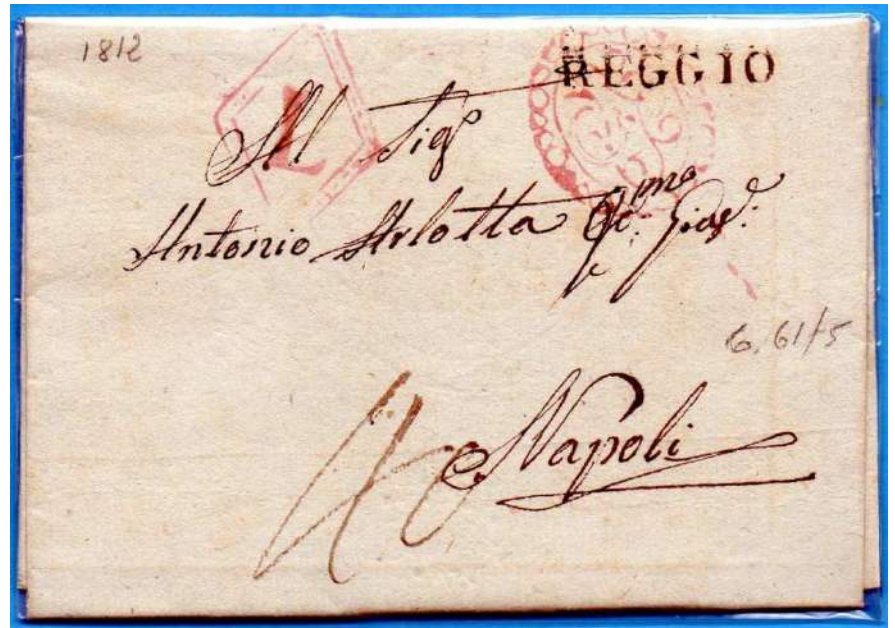 1812
L
REGGIO
All Sig.r
Antonio Arlotta
6.61/5
Napoli